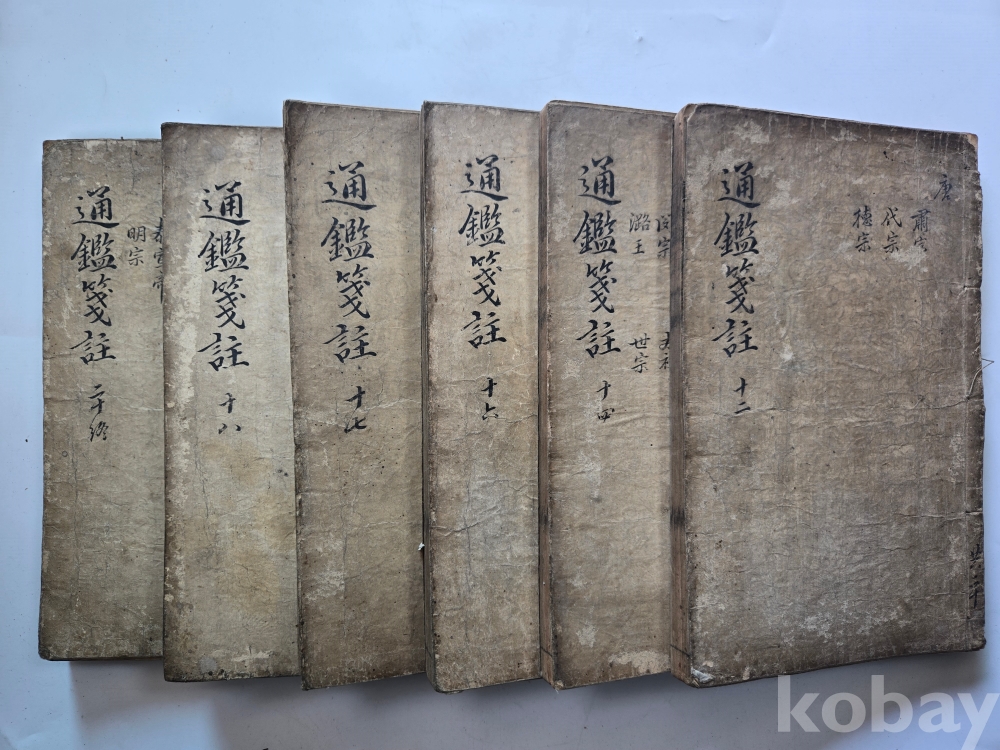 唐
肅宗
代宗
德宗
通鑑箋註 十二
共二十
閔宗
潞王
世宗
通鑑箋註 十四
通鑑箋註 十六
通鑑箋註 十七
通鑑箋註 十八
明宗
通鑑箋註 二十終
kobay